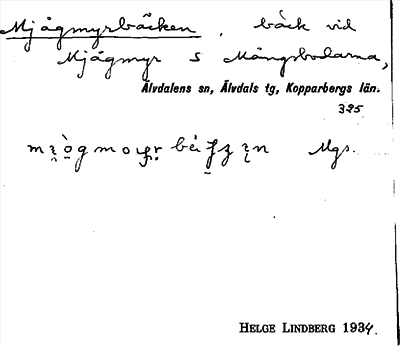 Mjågmyrbäcken, bäck vid
Mjågmyr S Mångsbodarna,
Älvdalens sn, Älvdals tg, Kopparbergs län.
325
Mgs.
HELGE LINDBERG 1934.